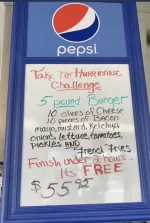 pepsi
TAKE THE HURRICANE
Challenge
5 pound Burger
10 slices of Cheese
10 pieces of Bacon
mayo, mustard, Ketchup
onions, lettuce, tomatoes,
PICKLES AND
French Fries
Finish under 2 hours
Its FREE
$55.95